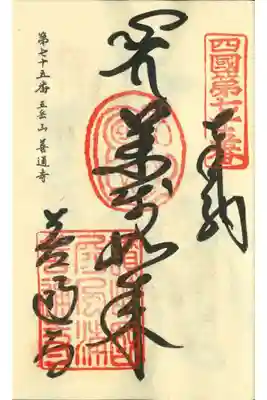 四國第七十五番
奉納
薬師如来
善通寺
第七十五番 五岳山 善通寺